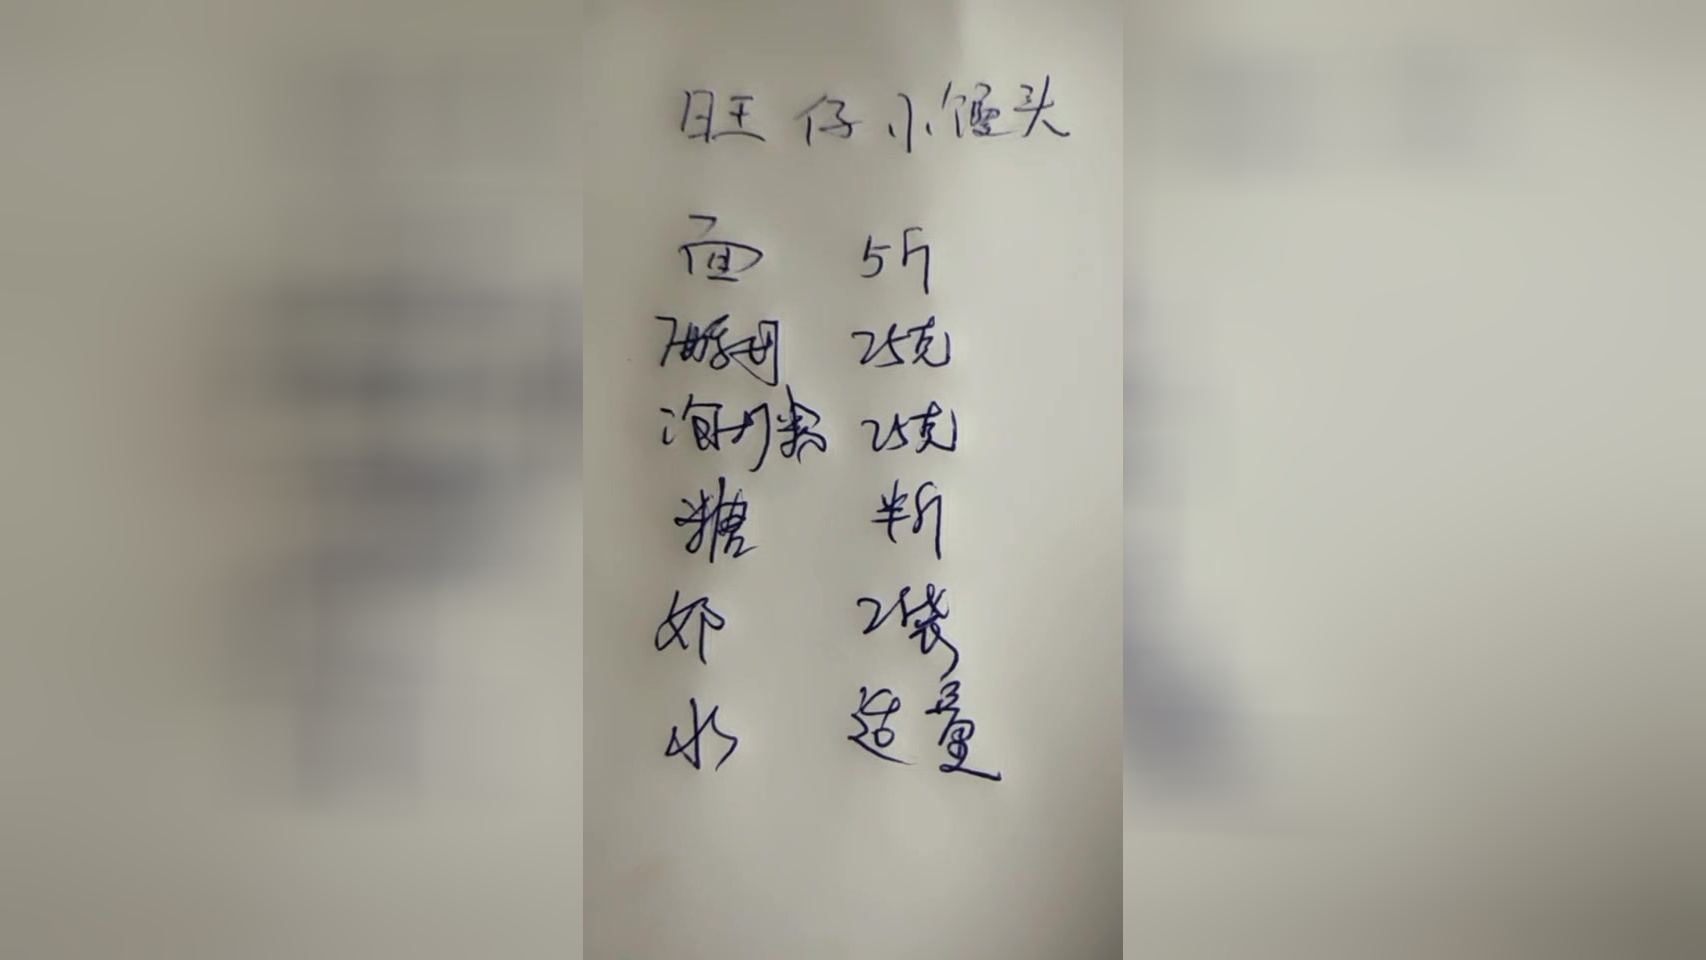 旺仔小馒头
面 5斤
酵母 25克
泡打粉 25克
糖 半斤
奶 2袋
水 适量